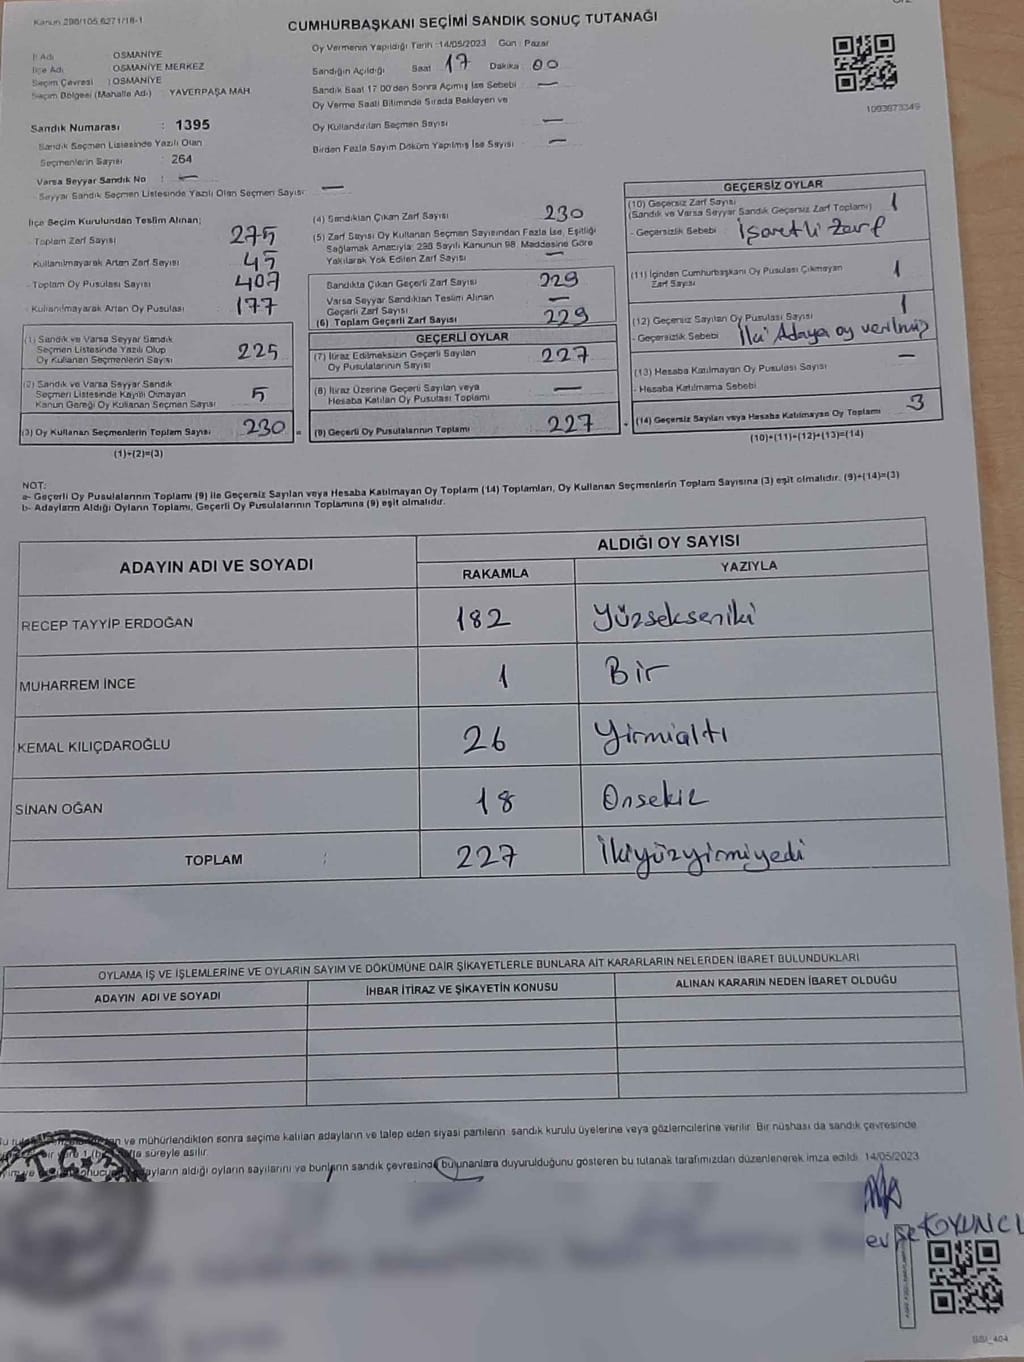 Kanun 298/105,6271/18-1
CUMHURBAŞKANI SEÇİMİ SANDIK SONUÇ TUTANAĞI
İl Adı OSMANİYE
İlçe Adı OSMANİYE MERKEZ
Seçim Çevresi : OSMANİYE
Seçim Bölgesi (Mahalle Adı) YAVERPAŞA MAH.
Oy Vermenin Yapıldığı Tarih :14/05/2023 Gün : Pazar
Sandığın Açıldığı Saat 17 Dakika 00
Sandık Saat 17.00'den Sonra Açılmış İse Sebebi —
Oy Verme Saati Bitiminde Sırada Bekleyen ve
Oy Kullandırılan Seçmen Sayısı —
Birden Fazla Sayım Döküm Yapılmış İse Sayısı —
1093673349
Sandık Numarası : 1395
Sandık Seçmen Listesinde Yazılı Olan
Seçmenlerin Sayısı : 264
Varsa Seyyar Sandık No : —
Seyyar Sandık Seçmen Listesinde Yazılı Olan Seçmen Sayısı —
İlçe Seçim Kurulundan Teslim Alınan;
- Toplam Zarf Sayısı 275
Kullanılmayarak Artan Zarf Sayısı 45
- Toplam Oy Pusulası Sayısı 407
- Kullanılmayarak Artan Oy Pusulası 177
(1) Sandık ve Varsa Seyyar Sandık
Seçmen Listesinde Yazılı Olup
Oy Kullanan Seçmenlerin Sayısı 225
(2) Sandık ve Varsa Seyyar Sandık
Seçmen Listesinde Kayıtlı Olmayan
Kanun Gereği Oy Kullanan Seçmen Sayısı 5
(3) Oy Kullanan Seçmenlerin Toplam Sayısı 230 =
(1)+(2)=(3)
(4) Sandıktan Çıkan Zarf Sayısı 230
(5) Zarf Sayısı Oy Kullanan Seçmen Sayısından Fazla İse, Eşitliği
Sağlamak Amacıyla; 298 Sayılı Kanunun 98. Maddesine Göre
Yakılarak Yok Edilen Zarf Sayısı —
Sandıkta Çıkan Geçerli Zarf Sayısı 229
Varsa Seyyar Sandıktan Teslim Alınan
Geçerli Zarf Sayısı —
(6) Toplam Geçerli Zarf Sayısı 229
GEÇERLİ OYLAR
(7) İtiraz Edilmeksizin Geçerli Sayılan
Oy Pusulalarının Sayısı 227
(8) İtiraz Üzerine Geçerli Sayılan veya
Hesaba Katılan Oy Pusulası Toplamı —
(9) Geçerli Oy Pusulalarının Toplamı 227 +
GEÇERSİZ OYLAR
(10) Geçersiz Zarf Sayısı
(Sandık ve Varsa Seyyar Sandık Geçersiz Zarf Toplamı) 1
- Geçersizlik Sebebi : İşaretli Zarf
(11) İçinden Cumhurbaşkanı Oy Pusulası Çıkmayan
Zarf Sayısı 1
(12) Geçersiz Sayılan Oy Pusulası Sayısı 1
- Geçersizlik Sebebi İki Adaya oy verilmiş
(13) Hesaba Katılmayan Oy Pusulası Sayısı —
- Hesaba Katılmama Sebebi
(14) Geçersiz Sayılan veya Hesaba Katılmayan Oy Toplamı 3
(10)+(11)+(12)+(13)=(14)
NOT:
a- Geçerli Oy Pusulalarının Toplamı (9) ile Geçersiz Sayılan veya Hesaba Katılmayan Oy Toplam (14) Toplamları, Oy Kullanan Seçmenlerin Toplam Sayısına (3) eşit olmalıdır. (9)+(14)=(3)
b- Adayların Aldığı Oyların Toplamı, Geçerli Oy Pusulalarının Toplamına (9) eşit olmalıdır.
ADAYIN ADI VE SOYADI
ALDIĞI OY SAYISI
RAKAMLA YAZIYLA
RECEP TAYYİP ERDOĞAN 182 Yüzsekseniki
MUHARREM İNCE 1 Bir
KEMAL KILIÇDAROĞLU 26 Yirmialtı
SİNAN OĞAN 18 Onsekiz
TOPLAM : 227 İkiyüzyirmiyedi
OYLAMA İŞ VE İŞLEMLERİNE VE OYLARIN SAYIM VE DÖKÜMÜNE DAİR ŞİKAYETLERLE BUNLARA AİT KARARLARIN NELERDEN İBARET BULUNDUKLARI
ADAYIN ADI VE SOYADI İHBAR İTİRAZ VE ŞİKAYETİN KONUSU ALINAN KARARIN NEDEN İBARET OLDUĞU
ve mühürlendikten sonra seçime katılan adayların ve talep eden siyasi partilerin sandık kurulu üyelerine veya gözlemcilerine verilir. Bir nüshası da sandık çevresinde
süreyle asılır.
adayların aldığı oyların sayılarını ve bunların sandık çevresinde bulunanlara duyurulduğunu gösteren bu tutanak tarafımızdan düzenlenerek imza edildi. 14/05/2023
T.C.
KOYUNCU
SSI_404